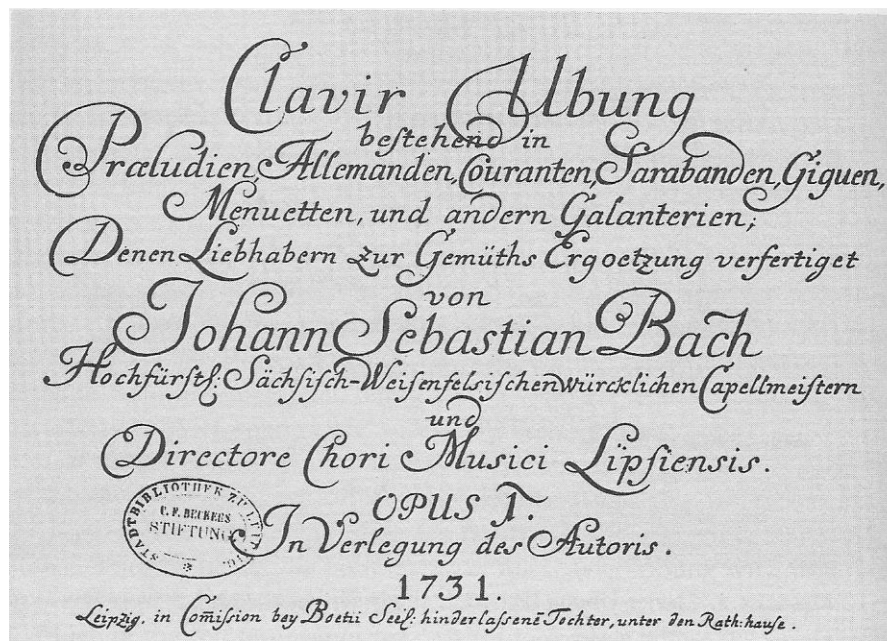 Clavir Ubung
bestehend in
Præludien, Allemanden, Couranten, Sarabanden, Giguen,
Menuetten, und andern Galanterien;
Denen Liebhabern zur Gemüths Ergoetzung verfertiget
von
Johann Sebastian Bach
Hochfürstl: Sächsisch-Weisenfelsischen würcklichen Capellmeistern
und
Directore Chori Musici Lipsiensis.
OPUS 1.
In Verlegung des Autoris.
1731.
Leipzig, in Com̄ission bey Boetii Seel: hinderlassenē Tochter, unter den Rath-hause.
STADTBIBLIOTHEK ZU LEIPZIG.
C. F. BECKERS
STIFTUNG